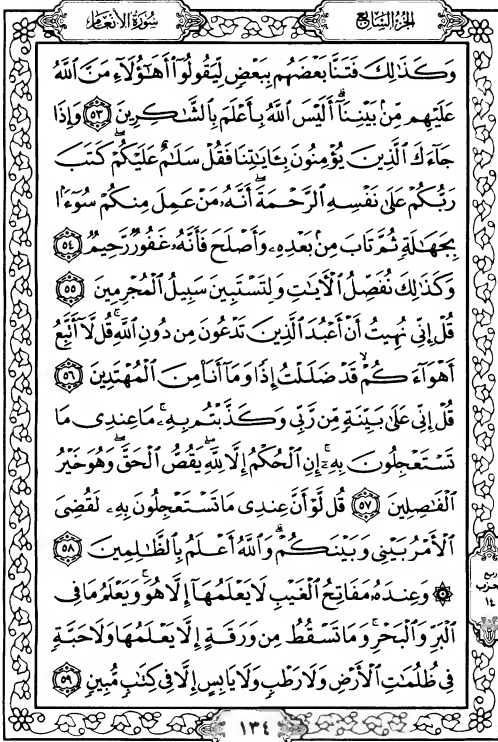 الجزء السابع
سورة الأنعام
وَكَذَٰلِكَ فَتَنَّا بَعْضَهُم بِبَعْضٍ لِّيَقُولُوٓا۟ أَهَٰٓؤُلَآءِ مَنَّ ٱللَّهُ
عَلَيْهِم مِّنۢ بَيْنِنَآ ۗ أَلَيْسَ ٱللَّهُ بِأَعْلَمَ بِٱلشَّٰكِرِينَ ٥٣ وَإِذَا
جَآءَكَ ٱلَّذِينَ يُؤْمِنُونَ بِـَٔايَٰتِنَا فَقُلْ سَلَٰمٌ عَلَيْكُمْ ۖ كَتَبَ
رَبُّكُمْ عَلَىٰ نَفْسِهِ ٱلرَّحْمَةَ ۖ أَنَّهُۥ مَنْ عَمِلَ مِنكُمْ سُوٓءًۢا
بِجَهَٰلَةٍ ثُمَّ تَابَ مِنۢ بَعْدِهِۦ وَأَصْلَحَ فَأَنَّهُۥ غَفُورٌ رَّحِيمٌ ٥٤
وَكَذَٰلِكَ نُفَصِّلُ ٱلْـَٔايَٰتِ وَلِتَسْتَبِينَ سَبِيلُ ٱلْمُجْرِمِينَ ٥٥
قُلْ إِنِّى نُهِيتُ أَنْ أَعْبُدَ ٱلَّذِينَ تَدْعُونَ مِن دُونِ ٱللَّهِ ۚ قُل لَّآ أَتَّبِعُ
أَهْوَآءَكُمْ ۙ قَدْ ضَلَلْتُ إِذًا وَمَآ أَنَا۠ مِنَ ٱلْمُهْتَدِينَ ٥٦
قُلْ إِنِّى عَلَىٰ بَيِّنَةٍ مِّن رَّبِّى وَكَذَّبْتُم بِهِۦ ۚ مَا عِندِى مَا
تَسْتَعْجِلُونَ بِهِۦٓ ۚ إِنِ ٱلْحُكْمُ إِلَّا لِلَّهِ ۖ يَقُصُّ ٱلْحَقَّ ۖ وَهُوَ خَيْرُ
ٱلْفَٰصِلِينَ ٥٧ قُل لَّوْ أَنَّ عِندِى مَا تَسْتَعْجِلُونَ بِهِۦ لَقُضِىَ
ٱلْأَمْرُ بَيْنِى وَبَيْنَكُمْ ۗ وَٱللَّهُ أَعْلَمُ بِٱلظَّٰلِمِينَ ٥٨
۞ وَعِندَهُۥ مَفَاتِحُ ٱلْغَيْبِ لَا يَعْلَمُهَآ إِلَّا هُوَ ۚ وَيَعْلَمُ مَا فِى
ٱلْبَرِّ وَٱلْبَحْرِ ۚ وَمَا تَسْقُطُ مِن وَرَقَةٍ إِلَّا يَعْلَمُهَا وَلَا حَبَّةٍ
فِى ظُلُمَٰتِ ٱلْأَرْضِ وَلَا رَطْبٍ وَلَا يَابِسٍ إِلَّا فِى كِتَٰبٍ مُّبِينٍ ٥٩
ربع
الحزب
١٤
١٣٤